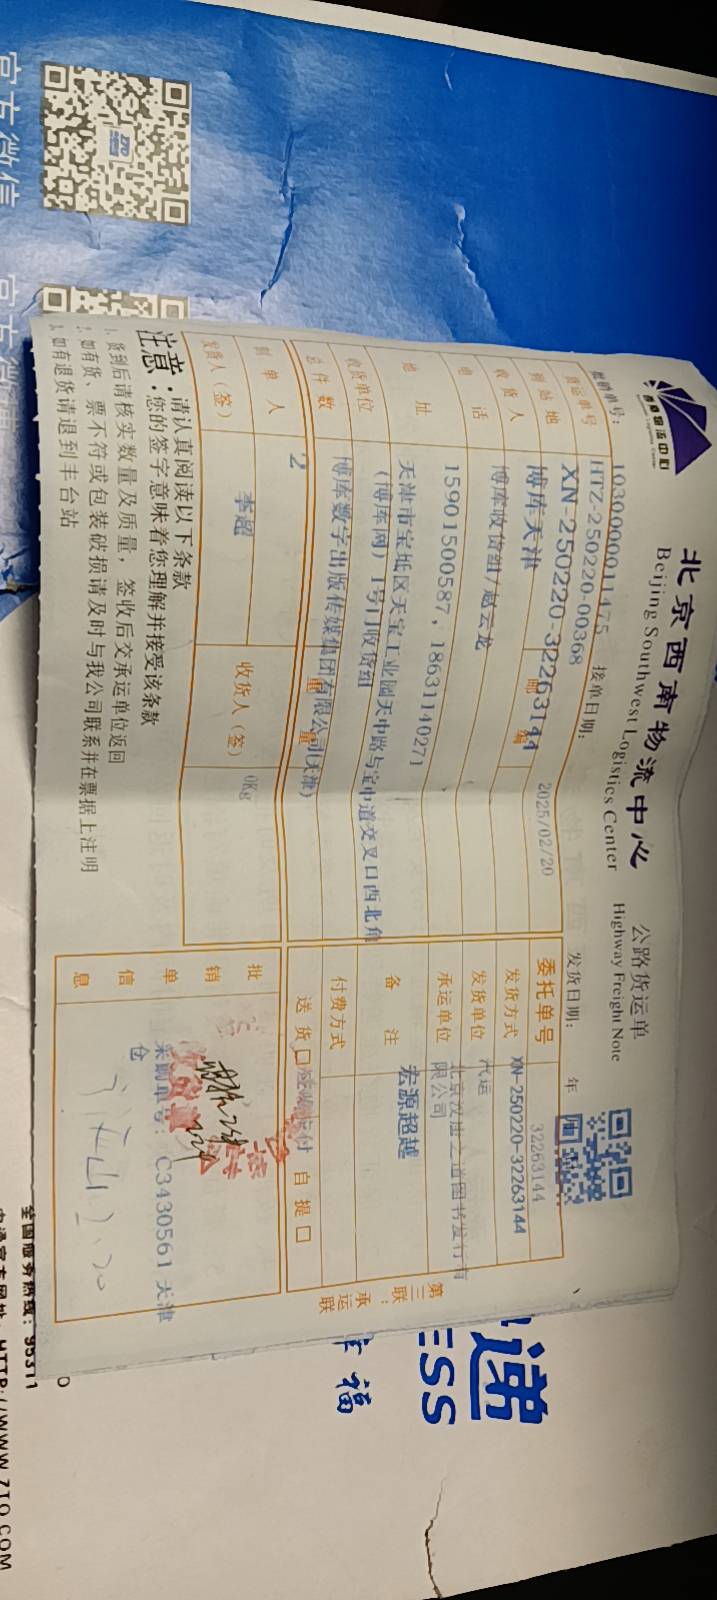 西南物流中心
北京西南物流中心
Beijing Southwest Logistics Center
公路货运单
Highway Freight Note
1030000011475
接单日期: 2025/02/20
发货日期: 年 月
货运单号 HTZ-250220-00368
XN-250220-32263144
委托单号 32263144
XN-250220-32263144
到站地 博库天津 邮编
发货方式 汽运
收货人 博库收货组/赵云龙
发货单位 北京汉唐之道图书发行有限公司
电话 15901500587, 18631140271
承运单位 宏源超越
地址 天津市宝坻区天宝工业园天中路与宝中道交叉口西北角
(博库网)1号门收货组
备注
收货单位 博库数字出版传媒集团有限公司(天津)
付费方式
总件数 2 重量 0Kg
送货口 自提口
制单人 李超
发货人(签) 收货人(签)
批销单信息
采购单号: C3430561 天津仓
第三联:承运联
注意:请认真阅读以下条款
您的签字意味着您理解并接受该条款
1.货到后请核实数量及质量,签收后交承运单位返回
2.如有货、票不符或包装破损请及时与我公司联系并在票据上注明
3.如有退货请退到丰台站
官方微信
官方微
递
ESS
幸福
全国服务热线: 95311
HTTP://WWW.ZTO.COM